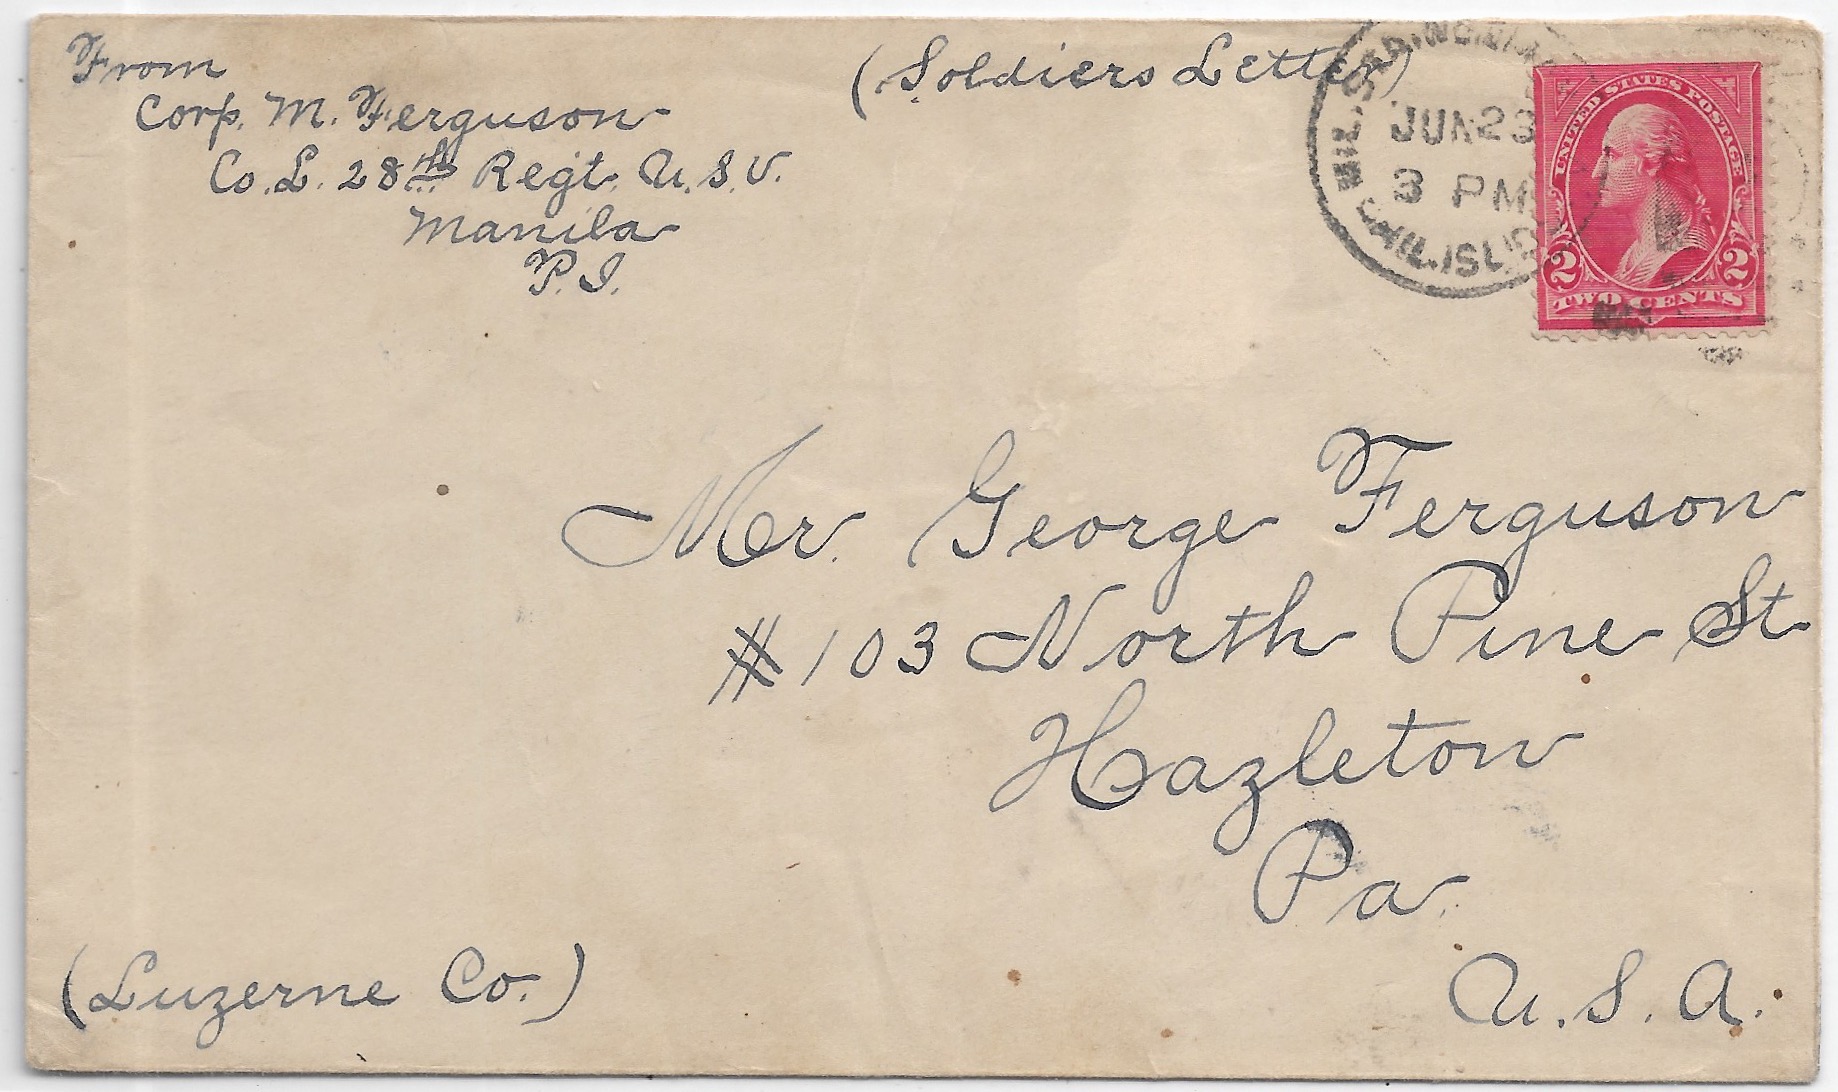 From
Corp. M. Ferguson
Co. L. 28th Regt. U. S. V.
Manila
P. I.
(Soldiers Letter)
MIL. STA.
JUN 23
3 PM
PHIL. ISL'DS
UNITED STATES POSTAGE
2 2
TWO CENTS
Mr. George Ferguson
# 103 North Pine St
Hazleton
Pa.
U. S. A.
(Luzerne Co.)